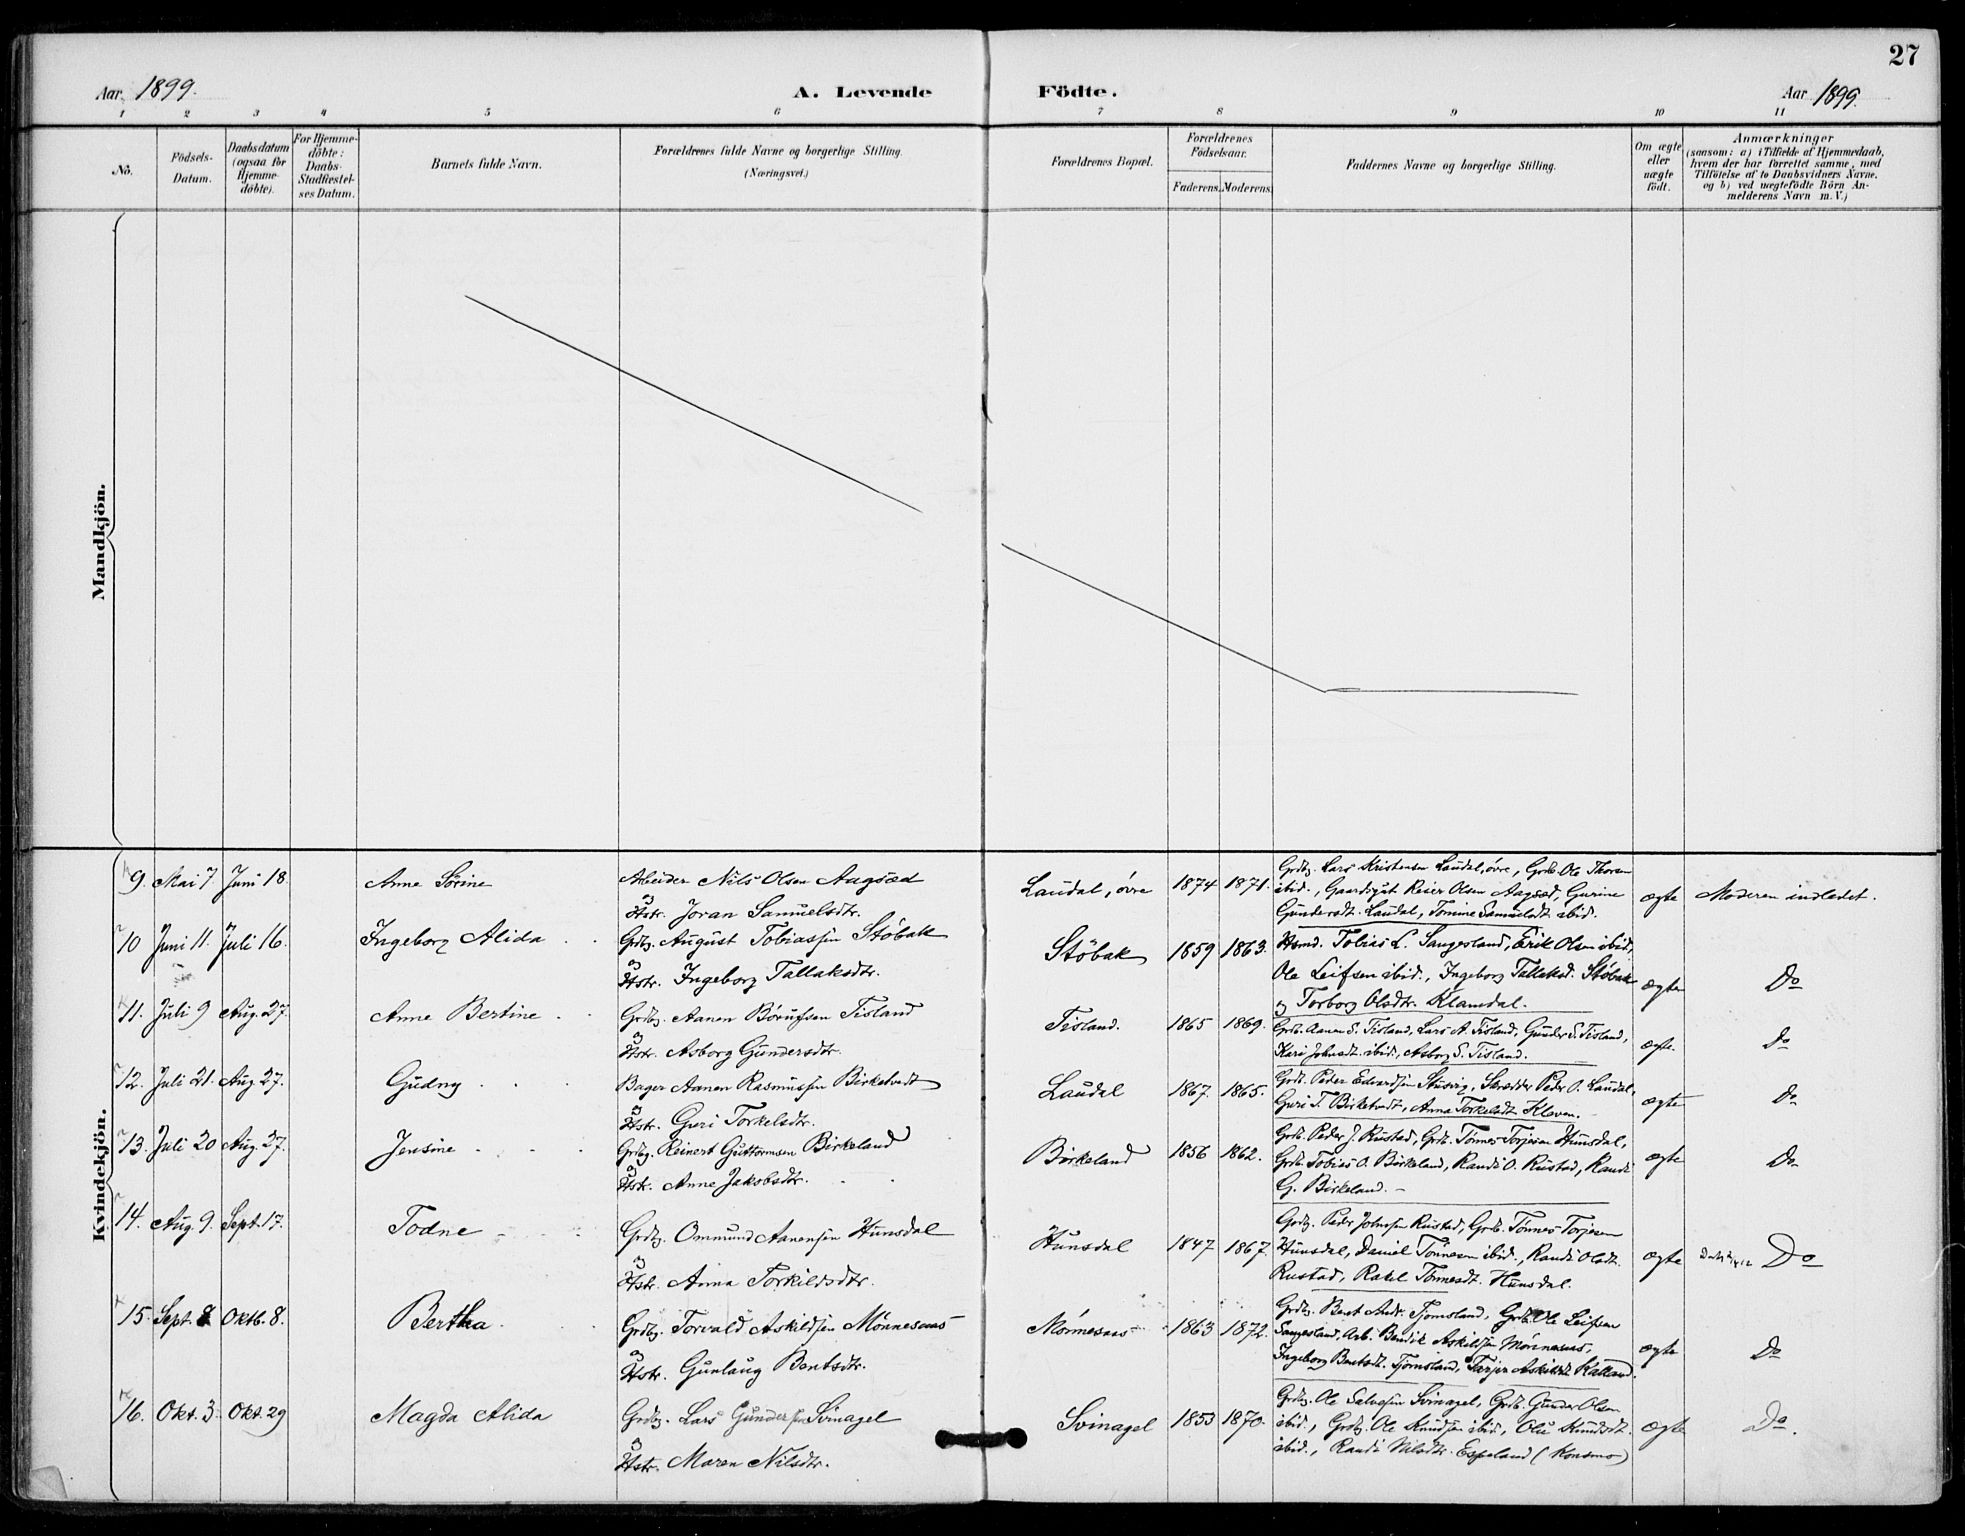 27
Aar 1899.
A. Levende Födte.
Aar 1899.
1 2 3 4 5 6 7 8 9 10 11
No.
Födsels-
Datum.
Daabsdatum
(ogsaa for
Hjemme-
döbte).
For Hjemme-
döbte:
Daabs-
Stadfæstel-
ses Datum.
Barnets fulde Navn.
Forældrenes fulde Navne og borgerlige Stilling.
(Næringsvei.)
Forældrenes Bopæl.
Forældrenes
Födselsaar.
Faderens. Moderens.
Faddernes Navne og borgerlige Stilling.
Om ægte
eller
uægte
födt.
Anmærkninger
(saasom: a) i Tilfælde af Hjemmedaab,
hvem der har forrettet samme, med
Tilföielse af to Daabsvidners Navne,
og b) ved uægtefödte Börn An-
melderens Navn m. V.)
Mandkjön.
Kvindekjön.
9. Mai 7 Juni 18.
Anne Sörine
Arbeider Nils Olsen Aagsæd
og
Hstr. Joran Samuelsdtr.
Laudal, övre
1874 1871.
Grdbr. Lars Kristensen Laudal, övre, Grdb. Ole Thorsen
ibid., Gaardsgut Reier Olsen Aagsæd, Gurine
Gundersdt. Laudal, Tomine Samuelsdt. ibid.
ægte
Moderen indledet.
10 Juni 11. Juli 16.
Ingeborg Alida
Grdbr. August Tobiassen Stöbak
og
Hstr. Ingeborg Tallaksdtr.
Stöbak
1859 1863.
Hsmd. Tobias L. Sangesland, Erik Olsen ibid.,
Ole Leifsen ibid., Ingeborg Tallaksd. Stöbak
og Torborg Olsdtr. Klamdal.
ægte
Do
11. Juli 9 Aug. 27.
Anne Bertine
Grdbr. Aanen Börufsen Tisland
og
Hstr. Asborg Gundersdtr.
Tisland.
1865 1869.
Grdb. Aanen S. Tisland, Lars A. Tisland, Gunder S. Tisland,
Kari Johnsdt. ibid., Asborg S. Tisland.
ægte.
Do
12. Juli 21. Aug. 27.
Gudny
Bager Aanen Rasmussen Birketvedt
og
Hstr. Guri Torkelsdtr.
Laudal
1867. 1865.
Grdb. Peder Edvardsen Stusvig, Skrædder Peder O. Laudal,
Guri T. Birketvedt, Anna Torkelsdt. Kleven.
ægte
Do
13. Juli 20 Aug. 27.
Jensine
Grdbr. Reinert Guttormsen Birkeland
og
Hstr. Anne Jakobsdtr.
Birkeland
1856 1862.
Grdb. Peder J. Rustad, Grdb. Tönnes Torjesen Hunsdal,
Grdb. Tobias O. Birkeland, Randi O. Rustad, Randi
G. Birkeland.
ægte
Do
14. Aug. 9. Sept. 17.
Todne
Grdbr. Ommund Aanensen Hunsdal
og
Hstr. Anna Torkildsdtr.
Hunsdal
1847 1867.
Grdbr. Peder Johnsen Rustad, Grdb. Tönnes Torjesen
Hunsdal, Daniel Tönnesen ibid., Randi Olsdt.
Rustad, Rakel Tönnesdt. Hunsdal.
ægte
Do
15. Sept. 8 Oktb. 8.
Bertha
Grdbr. Torvald Askildsen Mönnesaas
og
Hstr. Gunlaug Bentsdtr.
Mönnesaas
1863 1872.
Grdbr. Bent Andr. Tjomsland, Grdb. Ole Leifsen
Sangesland, Arb. Bendik Askildsen Mönnesaas,
Ingeborg Bentsdt. Tjomsland, Tarjer Askildsdt. Kalland.
ægte
Do
16. Okt. 3 Okt. 29
Magda Alida
Grdbr. Lars Gundersen Svinagel
og
Hstr. Maren Nilsdtr.
Svinagel
1853 1870.
Grdbr. Ole Salvesen Svinagel, Grdb. Gunder Olsen
ibid., Grdbr. Ole Knudsen ibid., Olu Knudsdt.
ibid., Randi Nilsdtr. Espeland (Konsmo)
ægte
Do.